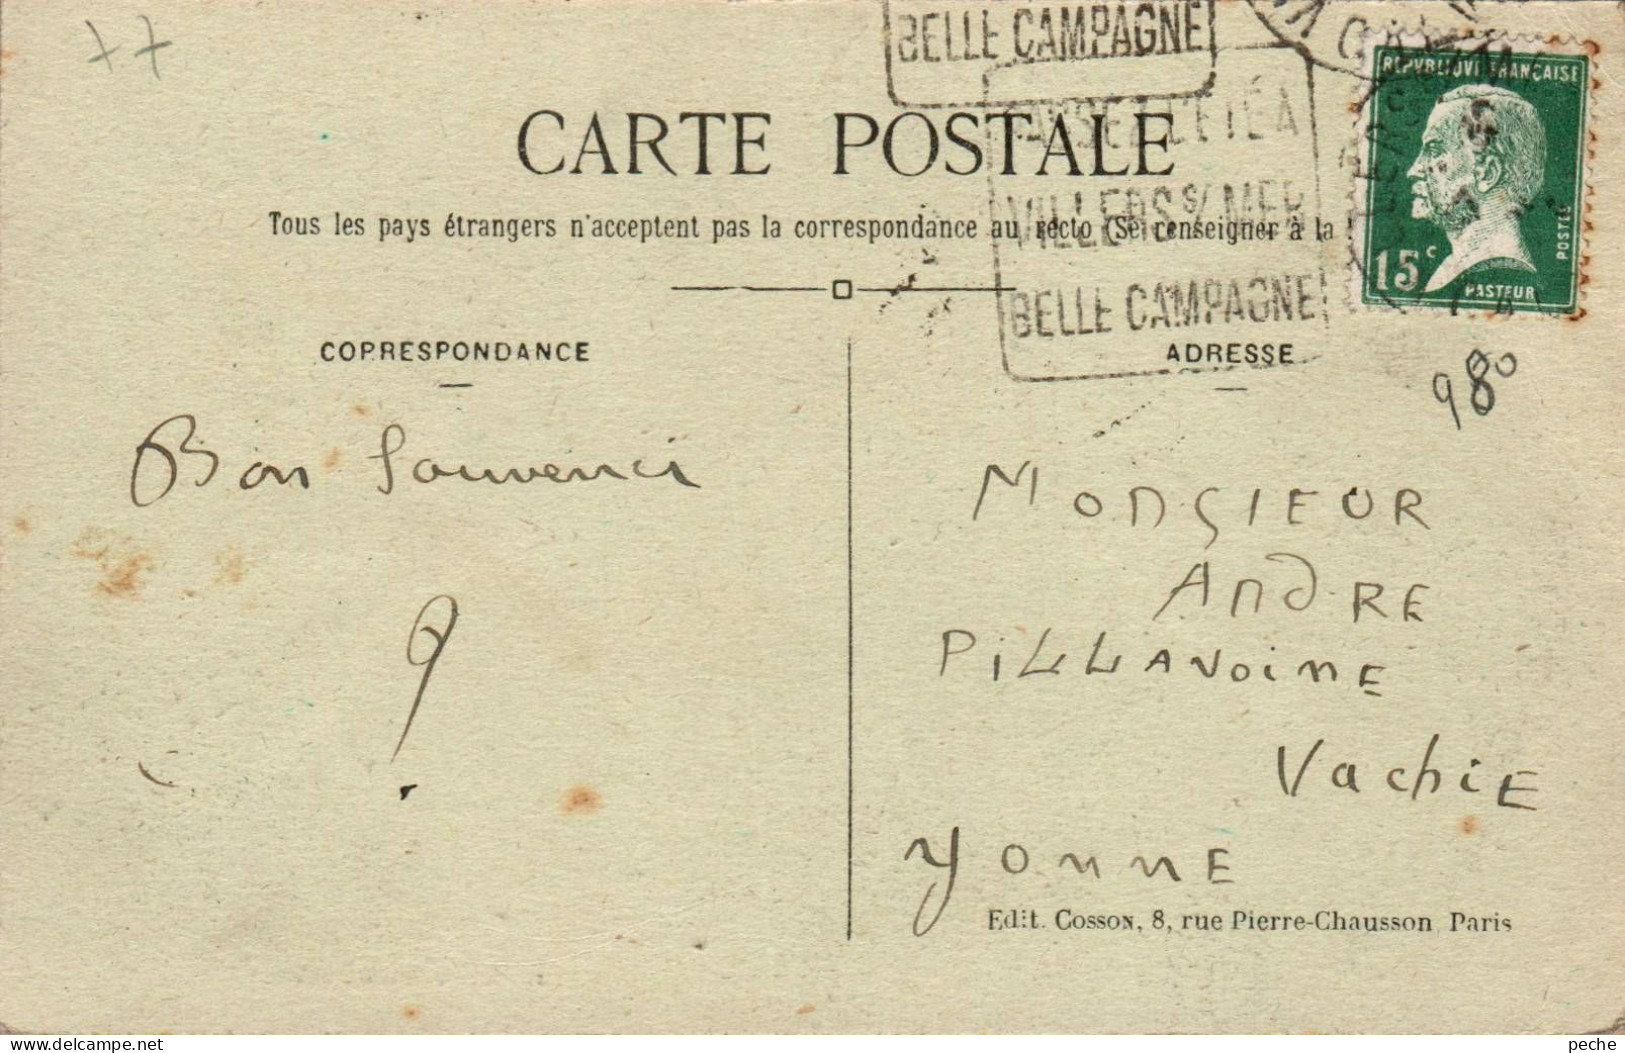 77
BELLE CAMPAGNE
CARTE POSTALE
PASSEZ L'ÉTÉ À
VILLERS S/ MER
BELLE CAMPAGNE
REPVBLIQVE FRANÇAISE
15c
POSTES
PASTEUR
Tous les pays étrangers n'acceptent pas la correspondance au recto (Se renseigner à la
CORRESPONDANCE
ADRESSE
980
Bon Souvenir
?
MONSIEUR
ANDRE
PILLAVOINE
VachiE
YONNE
Edit. COSSON, 8, rue Pierre-Chausson Paris
www.delcampe.net
peche